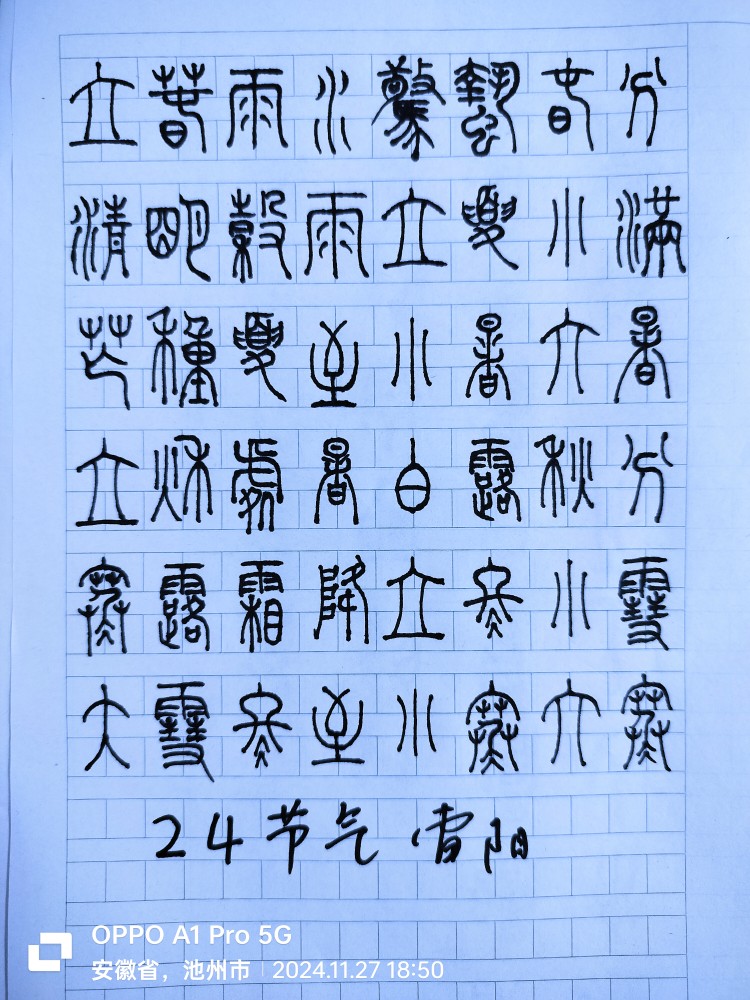 立春雨水驚蟄春分
清明穀雨立夏小滿
芒種夏至小暑大暑
立秋處暑白露秋分
寒露霜降立冬小雪
大雪冬至小寒大寒
24节气 雷阳
OPPO A1 Pro 5G
安徽省，池州市 | 2024.11.27 18:50